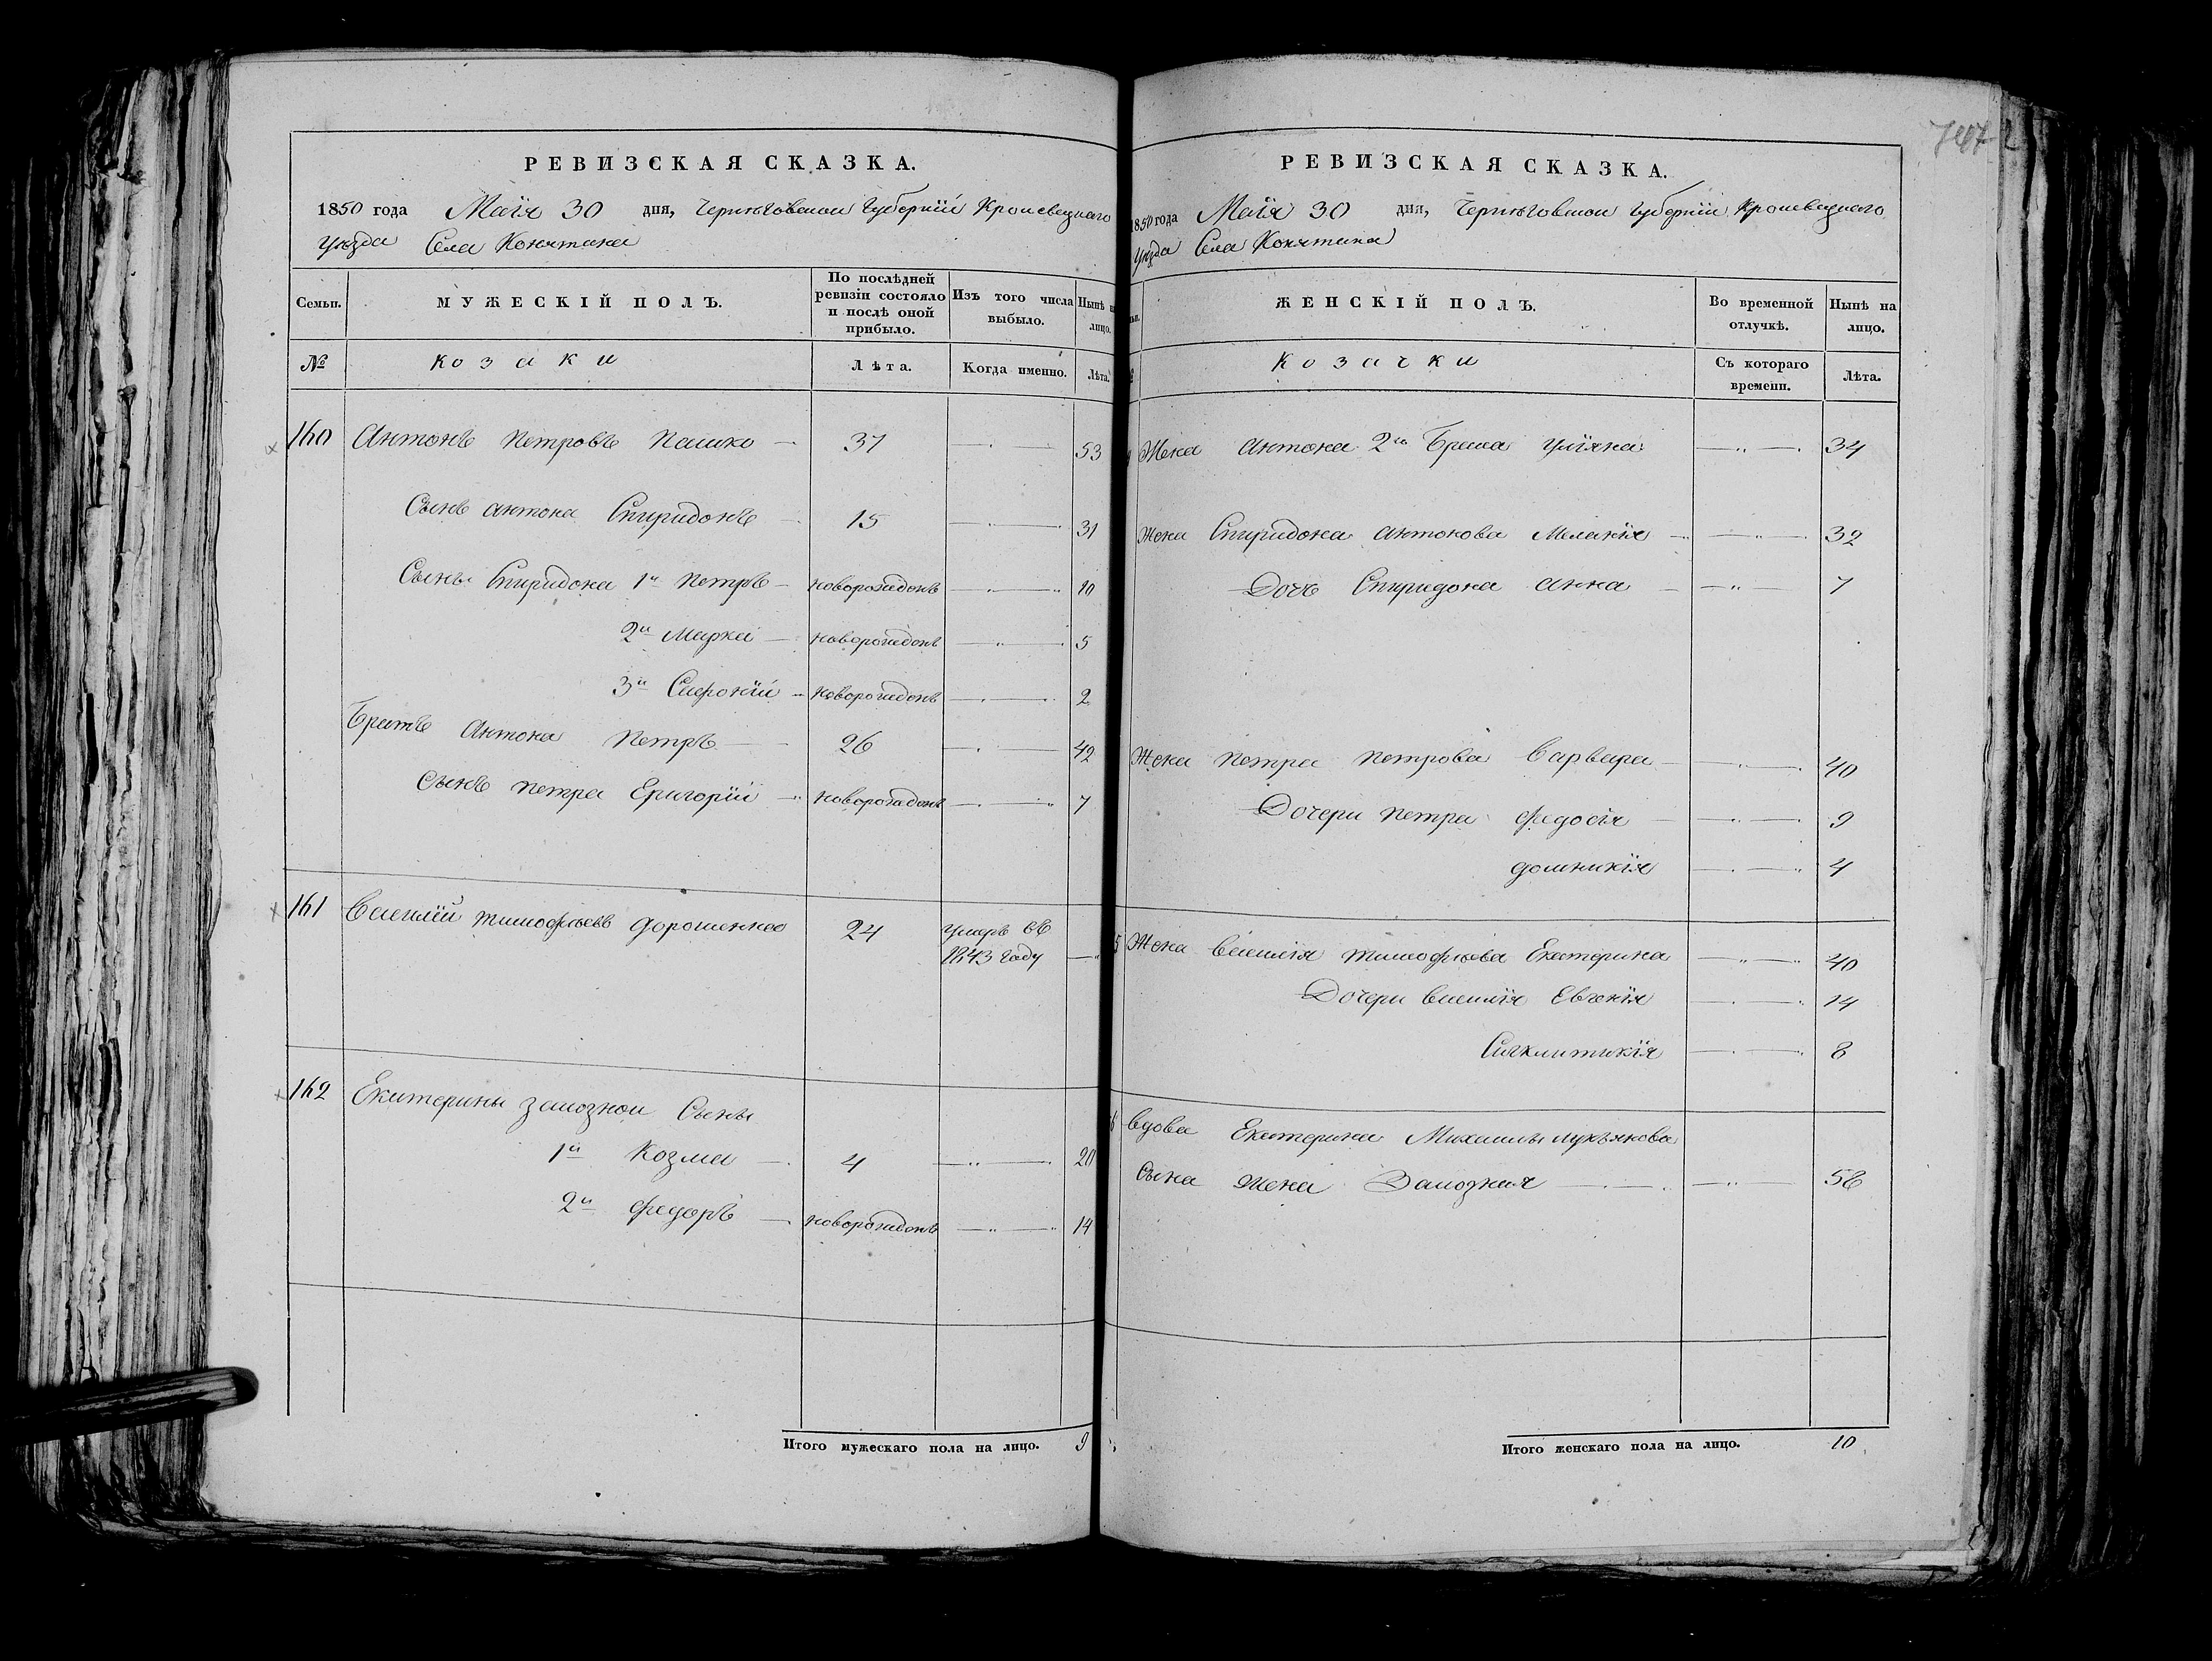 РЕВИЗСКАЯ СКАЗКА.
1850 года Маія 30 дня, Черниговской Губерніи Кролевецкаго
уѣзда Села Конятина
Семьи.
МУЖЕСКІЙ ПОЛЪ.
По послѣдней ревизіи состояло и послѣ оной прибыло.
Изъ того числа выбыло.
Нынѣ на лицо.
№
Козаки
Лѣта.
Когда именно.
Лѣта.
160 Антонъ Петровъ Пашко 37 53
Сынъ Антона Спиридонъ 15 31
Сыны Спиридона 1й Петръ новорожденъ 10
2й Марко новорожденъ 5
3й Сафоній новорожденъ 2
Братъ Антона Петръ 26 42
Сынъ Петра Григорій новорожденъ 7
161 Василій Тимофѣевъ Дорошенко 24 умеръ въ
1843 году
162 Екатерины Замозной Сыны
1й Козма 4 20
2й Федоръ новорожденъ 14
Итого мужескаго пола на лицо. 9
747
РЕВИЗСКАЯ СКАЗКА.
1850 года Маія 30 дня, Черниговской Губерніи Кролевецкаго
уѣзда Села Конятина
ЖЕНСКІЙ ПОЛЪ.
Во временной отлучкѣ.
Нынѣ на лицо.
Козачки
Съ котораго времени.
Лѣта.
Жена Антона 2го Брака Уліяна 34
Жена Спиридона Антонова Меланія 32
Дочь Спиридона Анна 7
Жена Петра Петрова Варвара 40
Дочери Петра Федосія 9
Домникія 4
Жена Василія Тимофѣева Екатерина 40
Дочери Василія Евгенія 14
Сигклитикія 8
Вдова Екатерина Михаилы Лукьянова
Сына Жена Замозная 58
Итого женскаго пола на лицо. 10